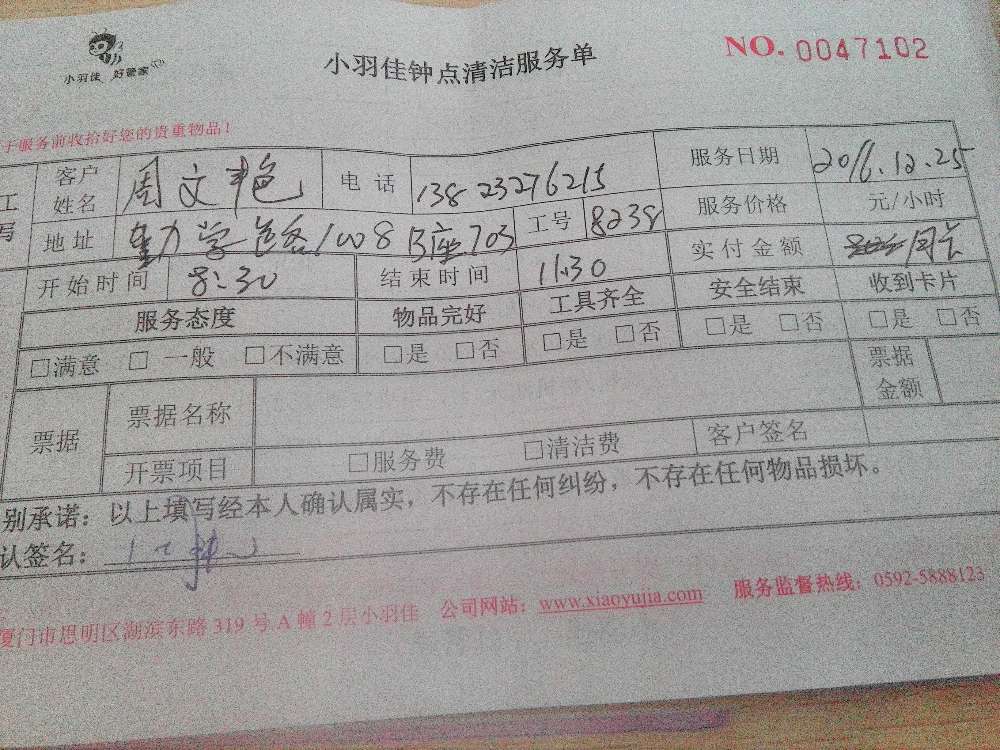 小羽佳 好管家
小羽佳钟点清洁服务单
NO. 0047102
于服务前收拾好您的贵重物品！
工
写
客户姓名 周文艳 电话 13823276215 服务日期 2016.12.25
地址 1008 B座703 工号 8238 服务价格 元/小时
开始时间 8:30 结束时间 11:30 实付金额 周卡
服务态度 物品完好 工具齐全 安全结束 收到卡片
□满意 □一般 □不满意 □是 □否 □是 □否 □是 □否 □是 □否
票据 票据名称 票据金额
开票项目 □服务费 □清洁费 客户签名
别承诺：以上填写经本人确认属实，不存在任何纠纷，不存在任何物品损坏。
认签名：
厦门市思明区湖滨东路319号A幢2层小羽佳 公司网站：www.xiaoyujia.com 服务监督热线：0592-5888123